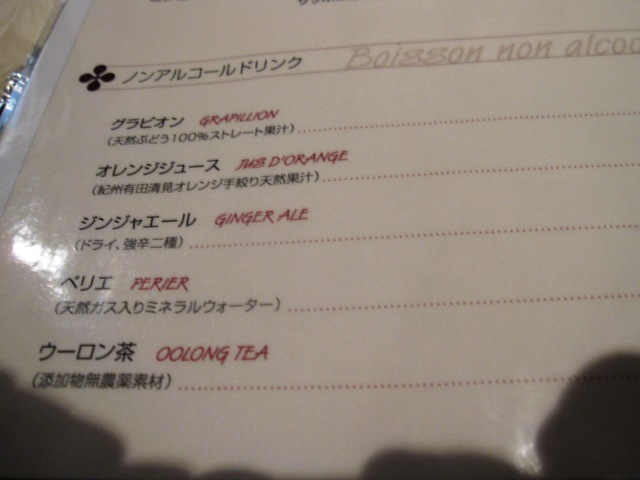 ノンアルコールドリンク Boisson non alcoo
グラピオン GRAPILLION
(天然ぶどう100%ストレート果汁)
オレンジジュース JUS D'ORANGE
(紀州有田清見オレンジ手絞り天然果汁)
ジンジャエール GINGER ALE
(ドライ、強辛二種)
ペリエ PERIER
(天然ガス入りミネラルウォーター)
ウーロン茶 OOLONG TEA
(添加物無農薬素材)